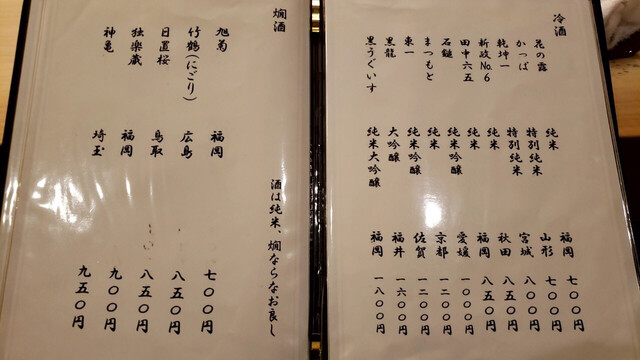 冷酒
花の露 純米 福岡 七〇〇円
かっぱ 特別純米 山形 七〇〇円
乾坤一 特別純米 宮城 八〇〇円
新政No.6 純米 秋田 八五〇円
田中六五 純米 福岡 八五〇円
石鎚 純米吟醸 愛媛 一〇〇〇円
まつもと 純米 京都 一二〇〇円
東一 純米吟醸 佐賀 一二〇〇円
黒龍 大吟醸 福井 一六〇〇円
黒うぐいす 純米大吟醸 福岡 一八〇〇円
燗酒
酒は純米、燗ならなお良し
旭菊 福岡 七〇〇円
竹鶴(にごり) 広島 八五〇円
日置桜 鳥取 八五〇円
独楽蔵 福岡 九〇〇円
神亀 埼玉 九五〇円